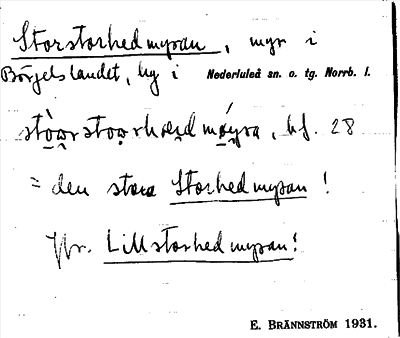 Storstorhedmyran, myr i
Börjelslandet, by i Nederluleå sn. o. tg. Norrb. l.
hf. 28
= den stora Storhedmyran!
Jfr. Lillstorhedmyran!
E. BRÄNNSTRÖM 1931.